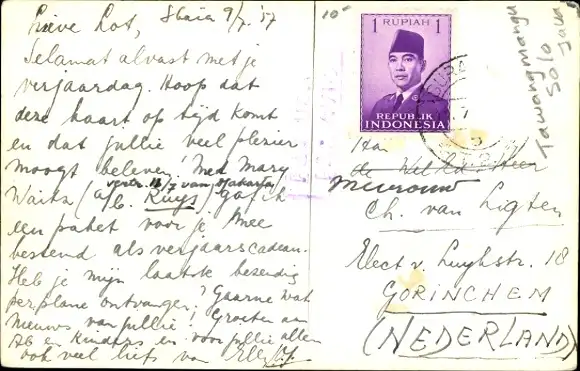 Lieve Lot, S'baia 9/7 '57
Selamat alvast met je
verjaardag. Hoop dat
deze kaart op tijd komt
en dat jullie veel plezier
moogt beleven! Met Mary
vertr. 16/7 van Djakarta
Waitz (a/b. Ruys) gaf ik
een pakket voor je mee
bestemd als verjaarscadeau.
Heb je mijn laatste bezending
per plane ontvangen? Gaarne wat
nieuws van jullie! Groeten aan
Ab en kinders en voor jullie allen
ook veel liefs van Elly
10-
1 RUPIAH 1
REPUBLIK
INDONESIA
SURA
Tawangmangu
SOLO
Java
de
Mevrouw
Ch. van Ligten
Elect v. Luykstr. 18
GORINCHEM
(NEDERLAND)